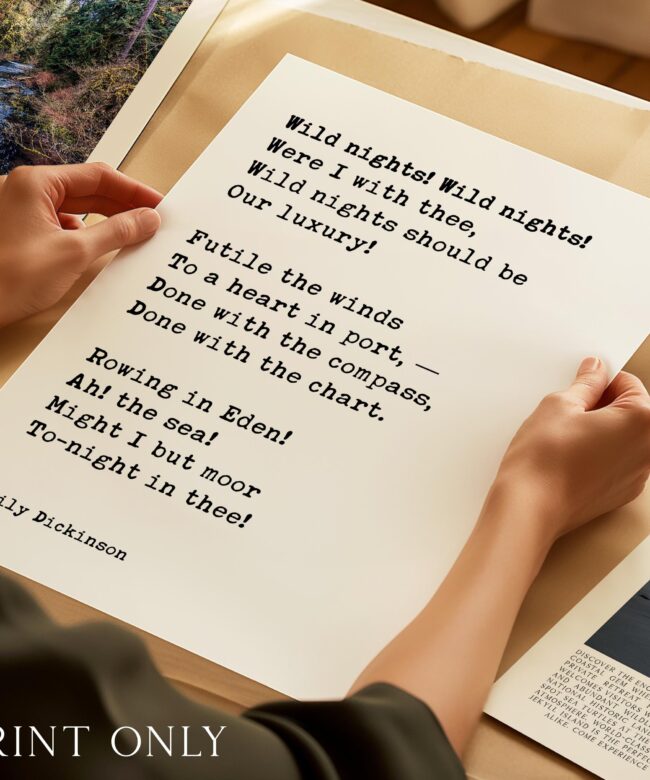 Wild nights! Wild nights!
Were I with thee,
Wild nights should be
Our luxury!
Futile the winds
To a heart in port, —
Done with the compass,
Done with the chart.
Rowing in Eden!
Ah! the sea!
Might I but moor
To-night in thee!
ily Dickinson
RINT ONLY
DISCOVER THE
COASTAL GEM
PRIVATE RETREAT
WELCOMES VISITORS
AND ABUNDANT
NATIONAL HISTORIC
SPOT SEA TURTLES AT THE
ATMOSPHERE, WORLD-CLASS
JEKYLL ISLAND IS THE
ALIKE. COME EXPERIENCE